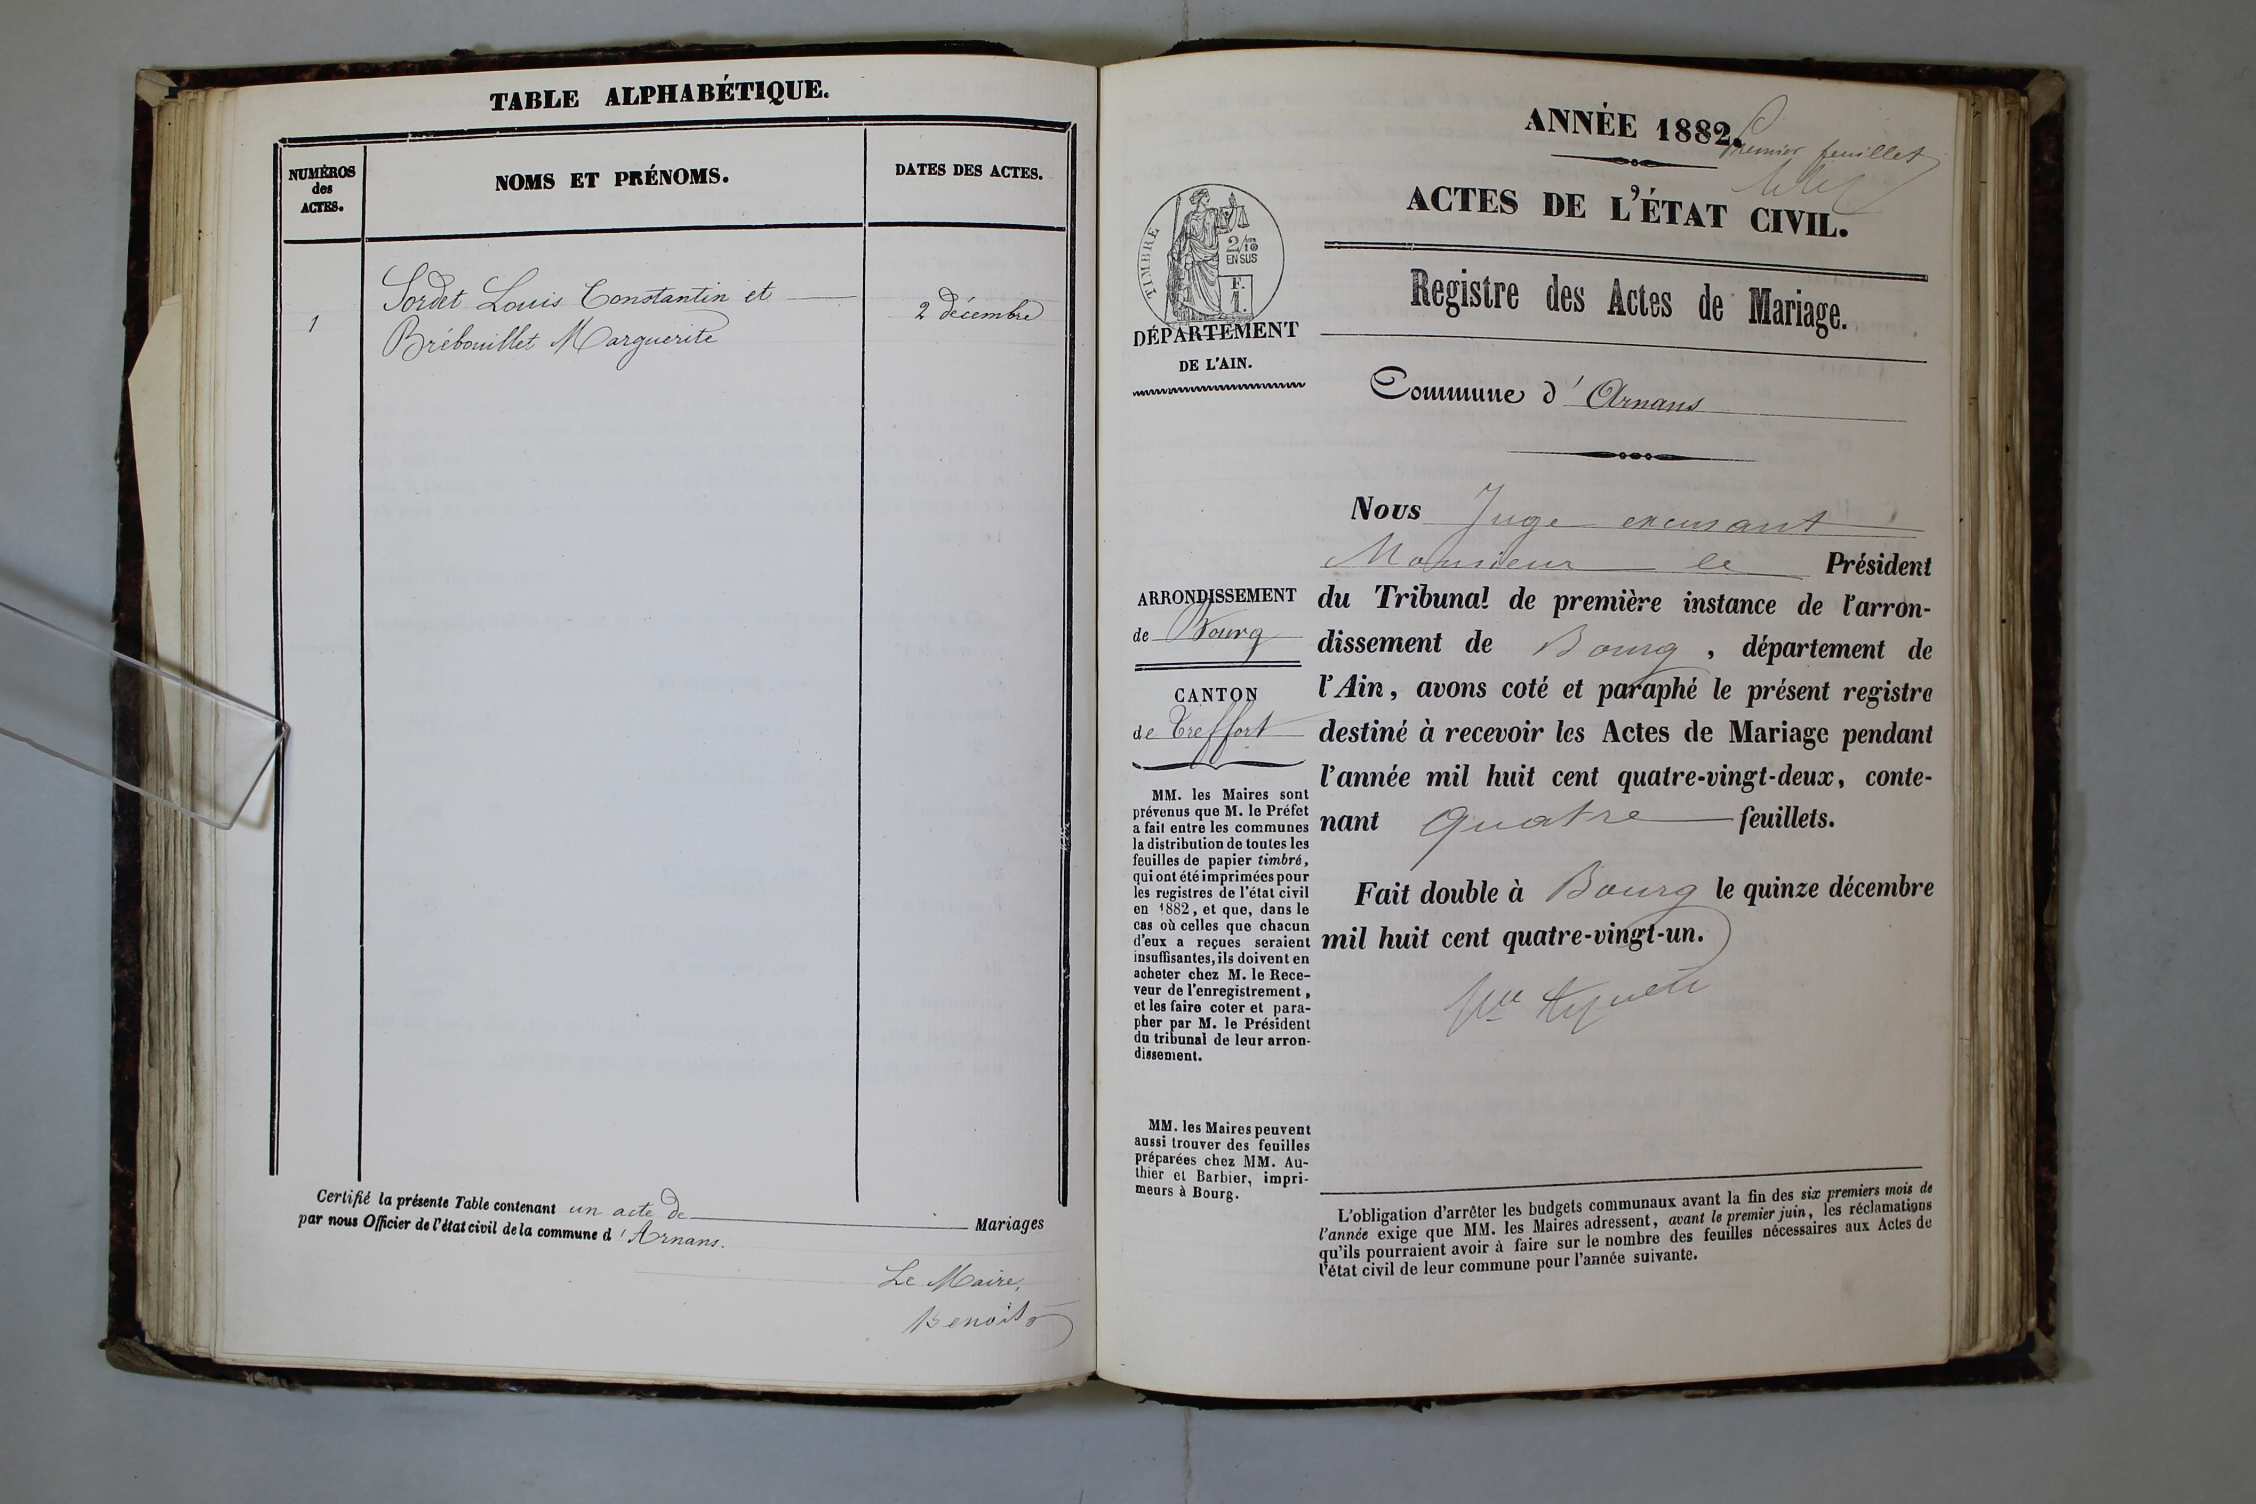 TABLE ALPHABÉTIQUE.
NUMÉROS
des
ACTES.
NOMS ET PRÉNOMS.
DATES DES ACTES.
1
Sordet Louis Constantin et
Brébouillet Marguerite
2 décembre
Certifié la présente Table contenant un acte de Mariages
par nous Officier de l'état civil de la commune d'Arnans.
Le Maire,
Benoit
ANNÉE 1882.
Premier feuillet
ACTES DE L'ÉTAT CIVIL.
Registre des Actes de Mariage.
TIMBRE
2/10
EN SUS
F.
1.
DÉPARTEMENT
DE L'AIN.
Commune d'Arnans
ARRONDISSEMENT
de Bourg
CANTON
de Treffort
MM. les Maires sont
prévenus que M. le Préfet
a fait entre les communes
la distribution de toutes les
feuilles de papier timbré,
qui ont été imprimées pour
les registres de l'état civil
en 1882, et que, dans le
cas où celles que chacun
d'eux a reçues seraient
insuffisantes, ils doivent en
acheter chez M. le Rece-
veur de l'enregistrement,
et les faire coter et para-
pher par M. le Président
du tribunal de leur arron-
dissement.
MM. les Maires peuvent
aussi trouver des feuilles
préparées chez MM. Au-
thier et Barbier, impri-
meurs à Bourg.
Nous Juge excusant
Monsieur le Président
du Tribunal de première instance de l'arron-
dissement de Bourg, département de
l'Ain, avons coté et paraphé le présent registre
destiné à recevoir les Actes de Mariage pendant
l'année mil huit cent quatre-vingt-deux, conte-
nant quatre feuillets.
Fait double à Bourg le quinze décembre
mil huit cent quatre-vingt-un.
L'obligation d'arrêter les budgets communaux avant la fin des six premiers mois de
l'année exige que MM. les Maires adressent, avant le premier juin, les réclamations
qu'ils pourraient avoir à faire sur le nombre des feuilles nécessaires aux Actes de
l'état civil de leur commune pour l'année suivante.